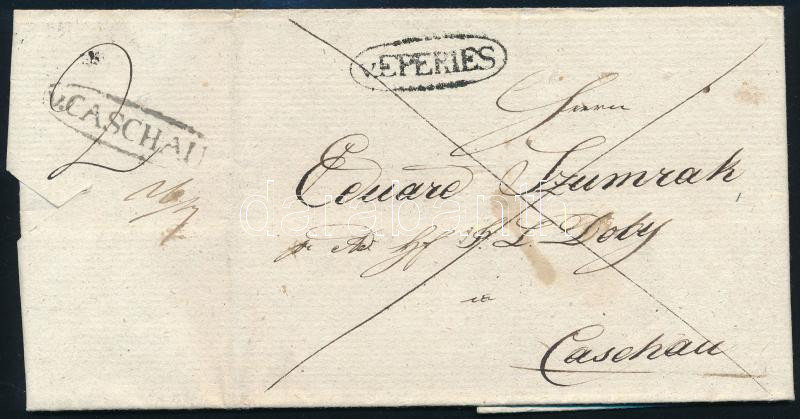 2
v.CASCHAU
v.EPERIES
Herrn
Eduard Szumrak
J. L. Doby
in
Caschau